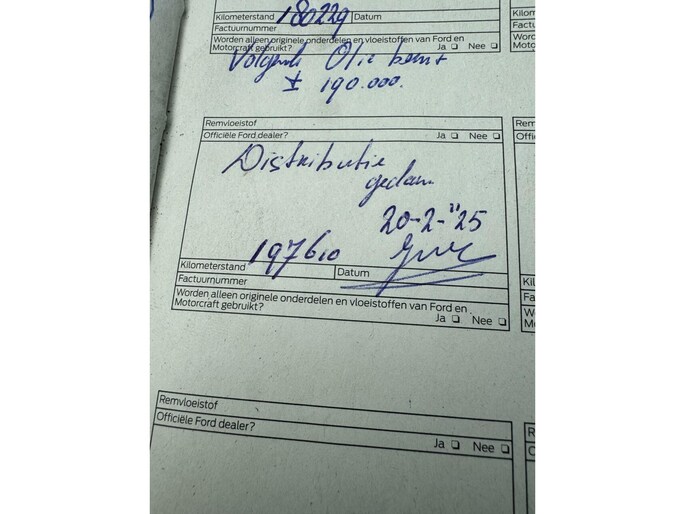 Kilometerstand 180229 Datum
Factuurnummer
Worden alleen originele onderdelen en vloeistoffen van Ford en
Motorcraft gebruikt? Ja ❏ Nee ❏
Volgende Olie beurt
± 190.000.
Remvloeistof
Officiële Ford dealer? Ja ❏ Nee ❏
Distributie
gedaan
20-2-"25
Kilometerstand 197610 Datum
Factuurnummer
Worden alleen originele onderdelen en vloeistoffen van Ford en
Motorcraft gebruikt? Ja ❏ Nee ❏
Remvloeistof
Officiële Ford dealer? Ja ❏ Nee ❏